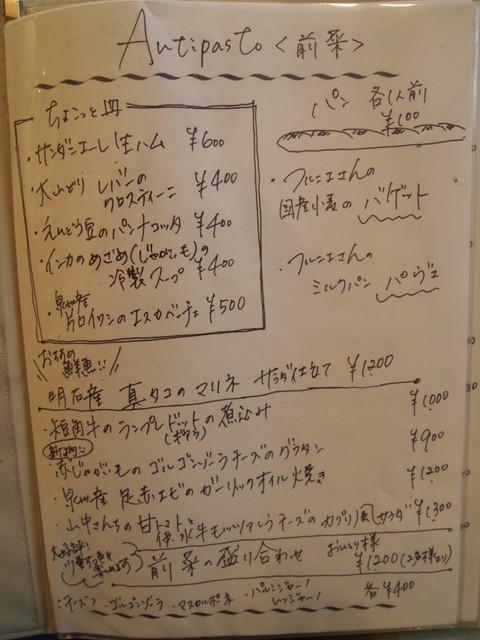 Antipasto <前菜>
ちょこっと皿
・サンダニエーレ生ハム ¥600
・大山どりレバーの
クロスティーニ ¥400
・えんどう豆のパンナコッタ ¥400
・インカのめざめ(じゃがいも)の
冷製スープ ¥400
・泉州産
片口イワシのエスカベッチェ ¥500
パン 各1人前
¥100
・フルニエさんの
国産小麦のバゲット
・フルニエさんの
ミルクパン パヴェ
おすすめ
鮮魚!!
明石産 真タコのマリネ サラダ仕立て ¥1200
・短角牛のランプレドットの煮込み ¥1,000
(ギアラ)
新物!!
赤じゃがいものゴルゴンゾーラチーズのグラタン ¥900
・泉州産 足赤エビのガーリックオイル焼き ¥1200
・山中さんちの甘トマト
伊水牛モッツァレラチーズのカプリ風サラダ ¥1300
前菜の盛り合わせ お一人様
¥1200(2名様より)
チーズ ・ゴルゴンゾーラ ・マスカルポーネ ・パルミジャーノ
レッジャーノ 各¥400